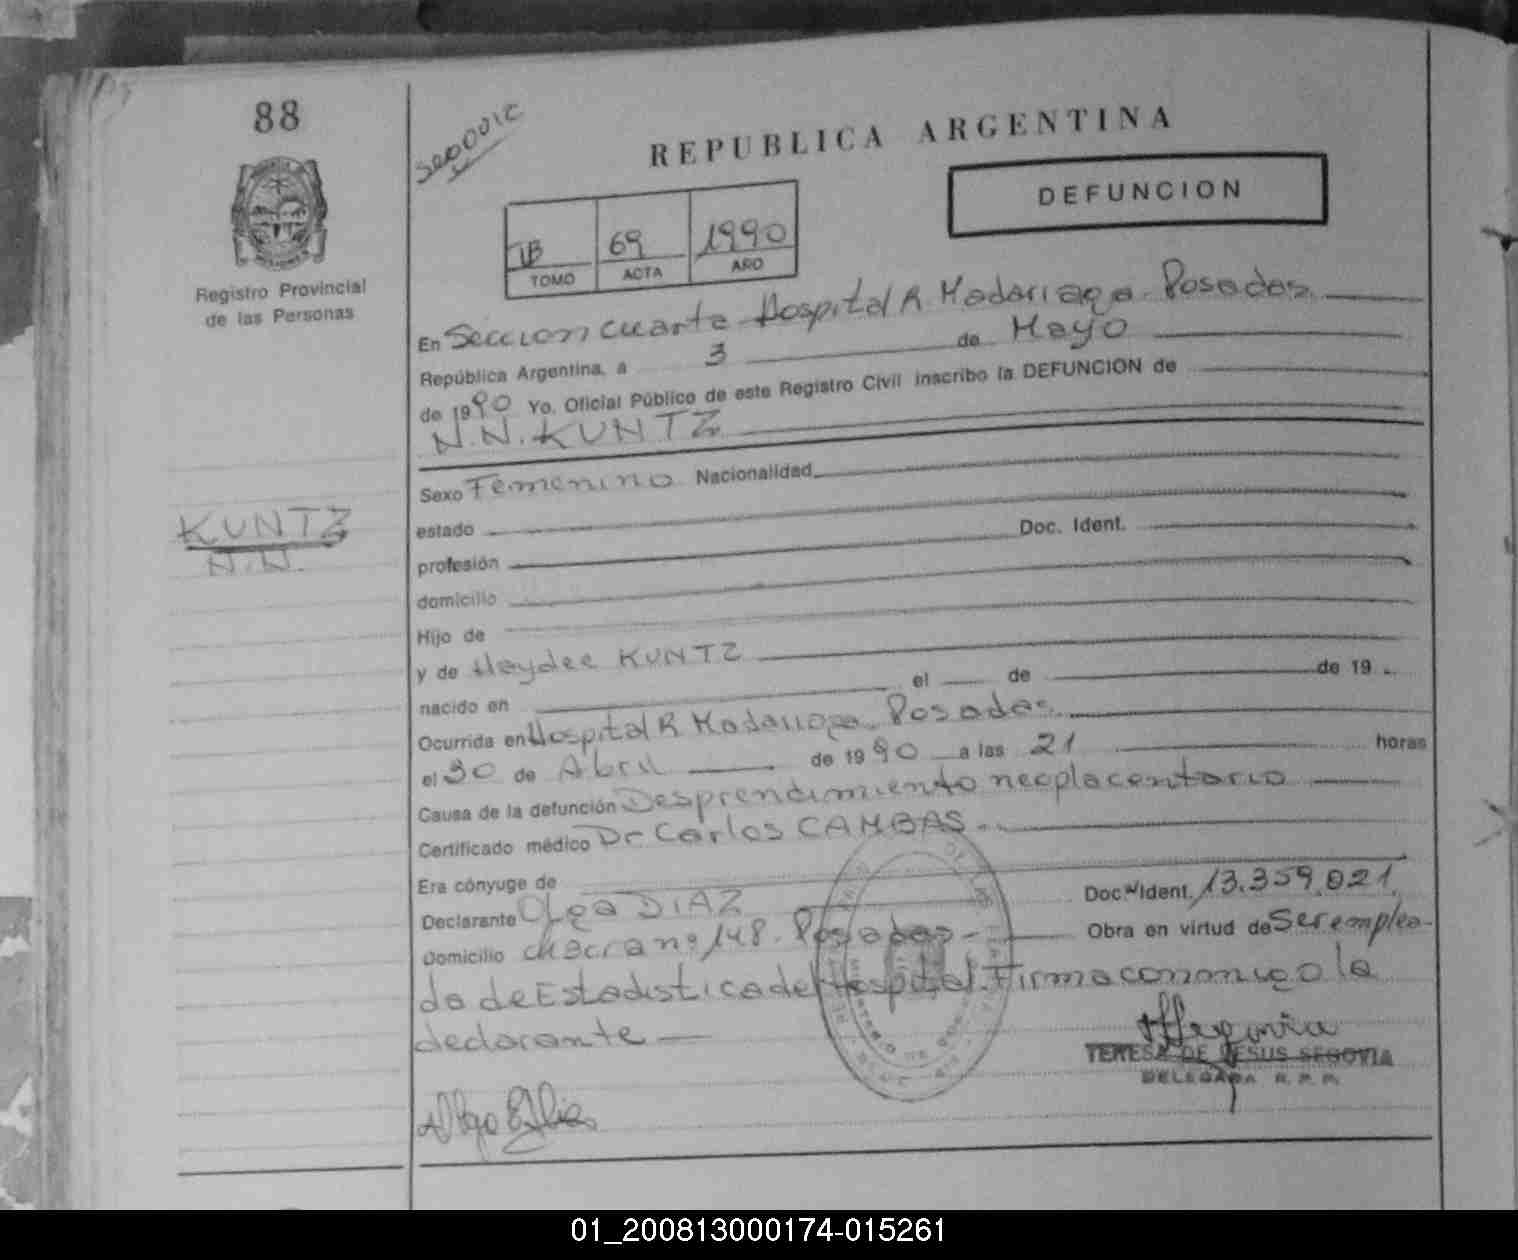 88
REPUBLICA ARGENTINA
DEFUNCION
Registro Provincial
de las Personas
69 1990
TOMO ACTA AÑO
En Seccion cuarta Hospital R. Madariaga. Posadas.
República Argentina, a 3 de Mayo
de 1990 Yo, Oficial Público de este Registro Civil inscribo la DEFUNCION de
N.N. KUNTZ
KUNTZ
N.N.
Sexo Femenino Nacionalidad
estado Doc. Ident.
profesión
domicilio
Hijo de
y de Haydee KUNTZ
nacido en el de de 19
Ocurrida en Hospital R Madariaga. Posadas.
el 30 de Abril de 1990 a las 21 horas
Causa de la defunción Desprendimiento neoplacentario
Certificado médico Dr Carlos CAMBAS.
Era cónyuge de
Declarante Olga DIAZ Doc. Ident. 13.359.021
Domicilio chacra nº 148. Posadas Obra en virtud de Ser emplea-
da de Estadistica del Hospital. Firma conmigo la
declarante
TERESA DE JESUS SEGOVIA
DELEGADA R. P. P.
01_200813000174-015261